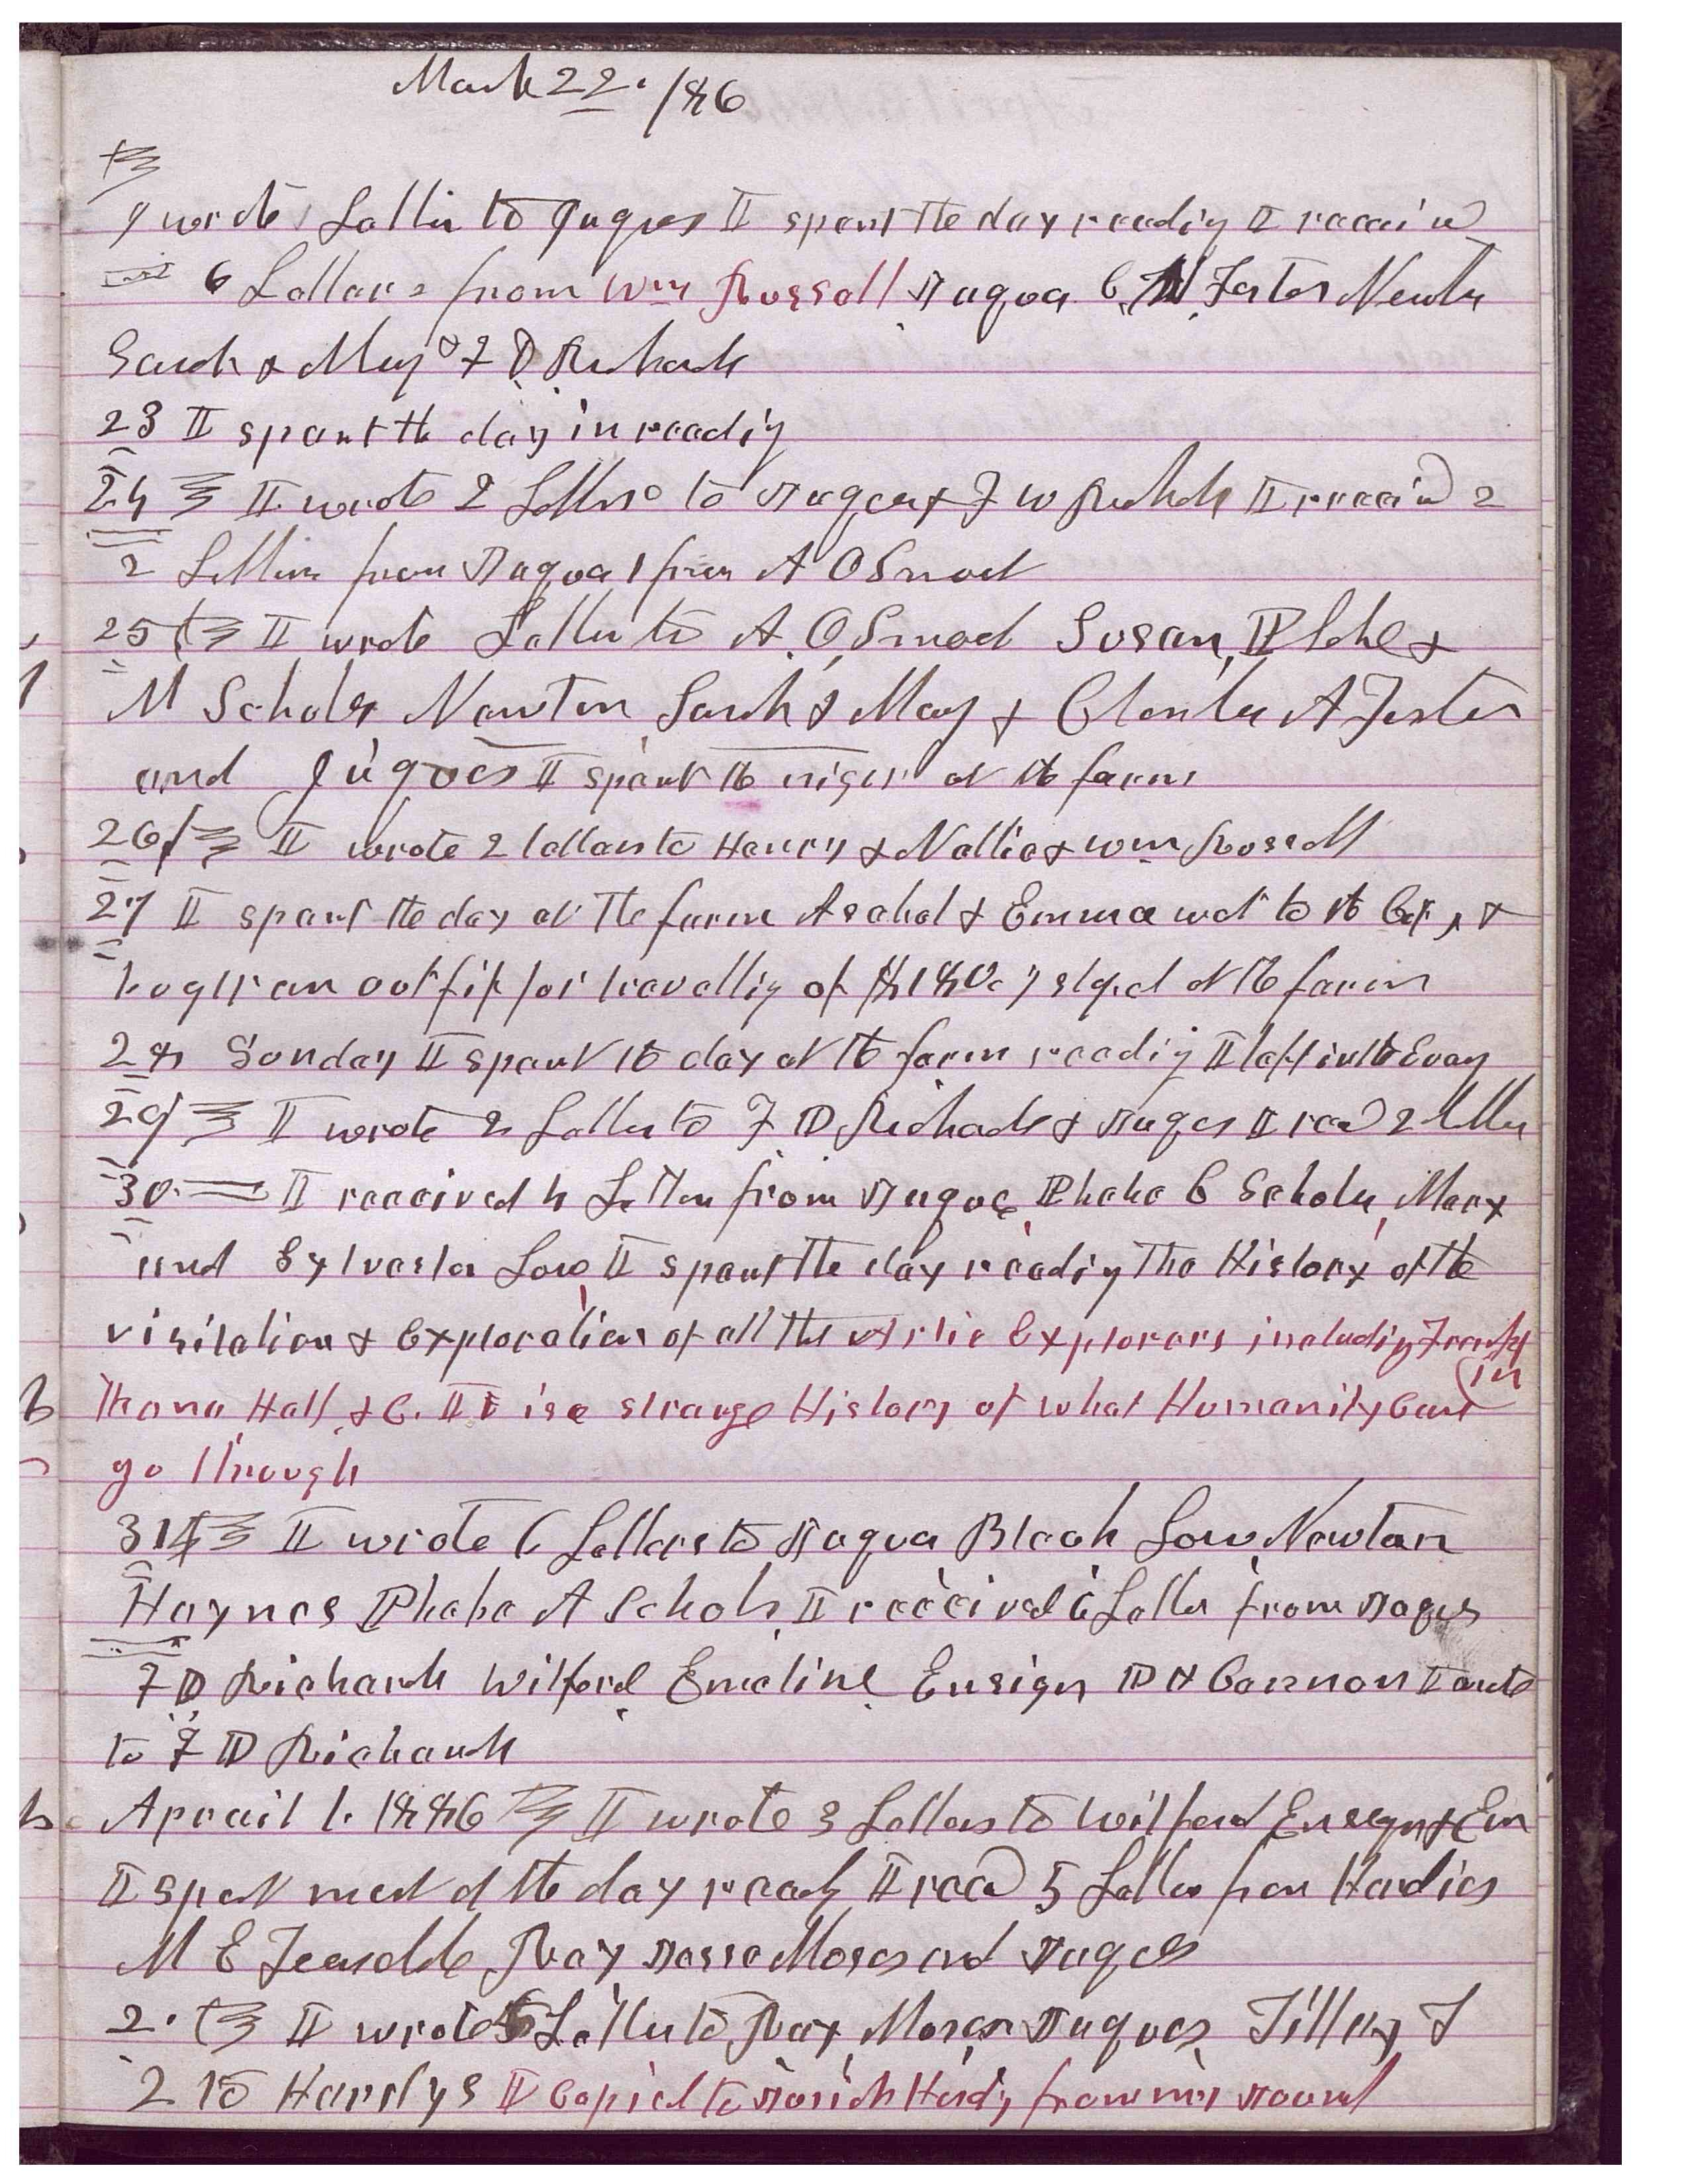 March 22. /86
I wrote 1 Letter to Jaques I spent the day reading I received
6 Letters from Wm Russell Jaques C. A. Foster Newton
Sarah & May & F D Richards
23 I spent the day in reading
24 I wrote 2 Letters to Jaques & F D Richards I received 2
2 Letters from Jaques 1 from A O Smoot
25 I wrote Letters to A. O. Smoot Susan, Phebe &
M Scholes Newton, Sarah & May & Charles A Foster
and Jaques I spent the night at the farm
26 I wrote 2 letters to Henry & Nellie & Wm Russell
27 I spent the day at the farm Asahel & Emma wet to the City, &
bought an outfit for travelling of $180. I slept at the farm
28 Sunday I spent the day at the farm reading I left in the Evening
29 I wrote 2 Letters to F D Richards & Jaques I recd 2 letters
30. I received 4 Letters from Jaques, Phebe C Scholes, Mary
and Sylvester Low, I spent the day reading The History of the
visitation & Exploration of all the Artic Explorers including Frankly
in
Kane, Hall, & C. It is a strange History of what Humanity Can
go through
31 I wrote 6 Letters to Jaques Bleak Low, Newton
Haynes Phebe A Scholes, I received 6 Letters from Jaques
F D Richards Wilford Emeline Ensign D H Cannon I wrote
to F D Richards
Aprail 1. 1886 I wrote 3 Letters to Wilford Ensign & Em
I spent most of the day reading I recd 5 Letters from Hardies
M E Teasdale Ray Jesse Moses and Jaques
2. I wrote 5 Letters to Ray, Moses Jaques, Tilley &
2 to Hardys I Copied to Josiah Hardy from my Journal